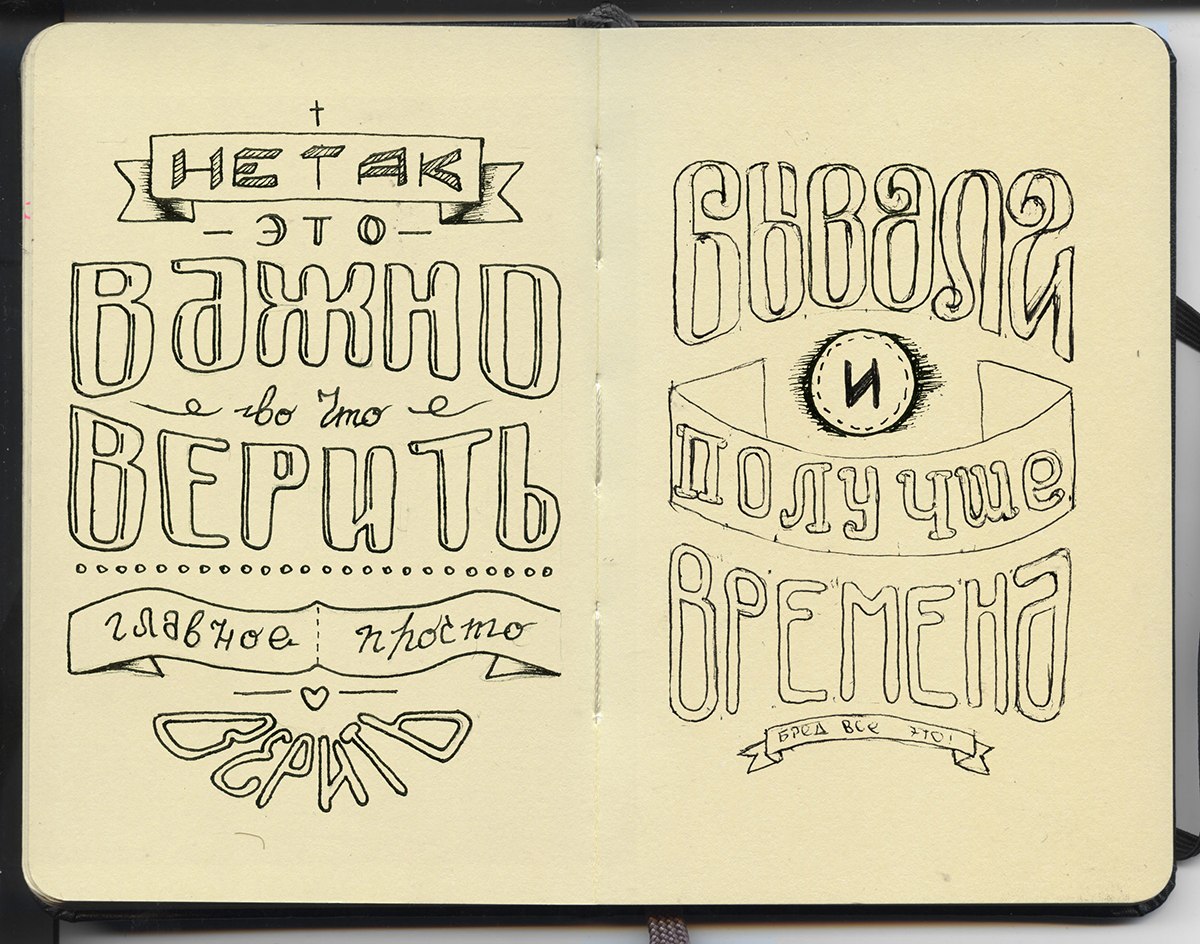 НЕ ТАК
ЭТО
ВАЖНО
во что
ВЕРИТЬ
главное просто
ВЕРИТЬ
БЫВАЛИ
И
ПОЛУЧШЕ
ВРЕМЕНА
БРЕД ВСЕ ЭТО!